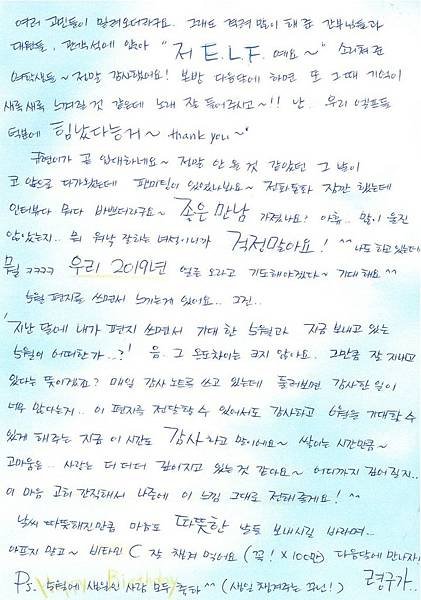 여러 고민들이 밀려오더라구요. 그래도 격려 많이 해 준 간부님들과
대원들, 관객석에 앉아 "저 E.L.F. 예요~" 소리쳐준
여학생들~ 정말 감사했어요! 본방 다음달에 하면 또 그때 기억이
새록새록 느껴질 것 같은데 노래 잘 들어주시고~!! 난.. 우리 엘프들
덕분에 힘났다능거~ thank you~
규현이가 곧 입대하네요~ 정말 안 올 것 같았던 그 날이
코 앞으로 다가왔는데 팬미팅이 있었나봐요~ 전화통화 잠깐 했는데
인터뷰다 뭐다 바쁘더라구요~ 좋은 만남 가졌나요? 아휴.. 많이 울진
않았는지.. 뭐 워낙 잘하는 녀석이니까 걱정말아요! ^^ 나도 하고 있는데
뭘 ㅋㅋㅋㅋ 우리 2019년 얼른 오라고 기도해야겠다~ 기대해요^^
5월 편지를 쓰면서 느끼는게 있어요.. 그건..
'지난 달에 내가 편지 쓰면서 기대한 5월과 지금 보내고 있는
5월이 어떠한가..?' 음. 그 온도차이는 크지 않아요. 그만큼 잘 지내고
있다는 뜻이겠죠? 매일 감사노트를 쓰고 있는데 돌려보면 감사한 일이
너무 많다는거.. 이 편지를 전달할 수 있어서도 감사하고 6월을 기대할 수
있게 해주는 지금 이 시간도 감사하고 말이에요~ 쌓이는 시간만큼~
고마움은.. 사랑은 더 더 더 깊어지고 있는 것 같아요~ 어디까지 깊어질지..
이 마음 고히 간직해서 나중에 이 느낌 그대로 전해줄게요! ^^
날씨 따뜻해진만큼 마음도 따뜻한 날들 보내시길 바라며..
아프지 말고~ 비타민 C 잘 챙겨 먹어요 (꼭! X100만) 다음달에 만나자!
Ps. 5월에 생일인 사람 모두 축하^^ (생일 챙겨주는 꾸닌!) 려구가..